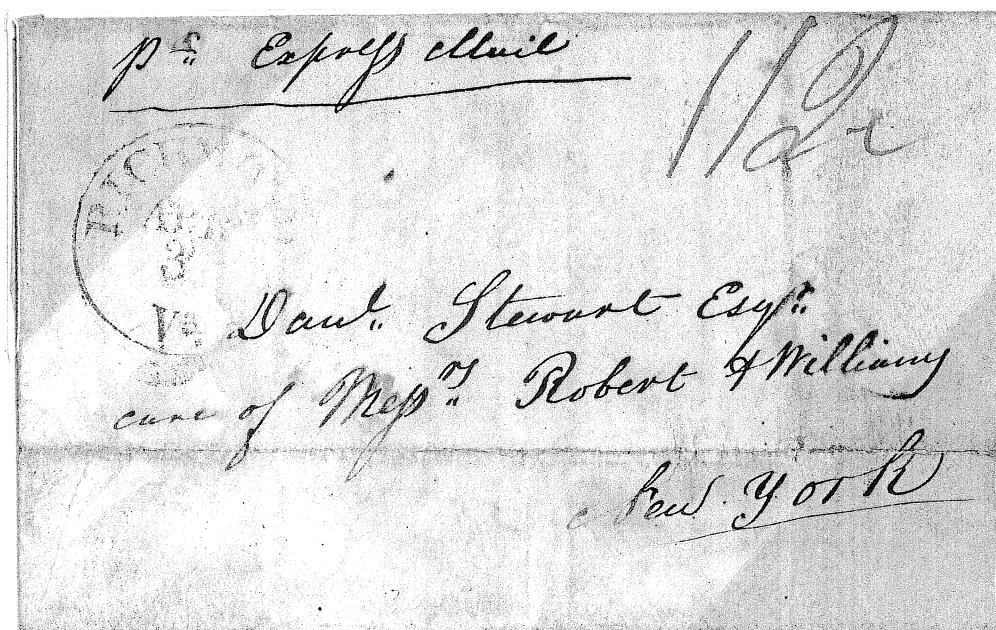 pr. Express Mail
112
RICHM
APR
3
Va.
Danl. Stewart Esqr.
care of Messrs. Robert & Williams
New York